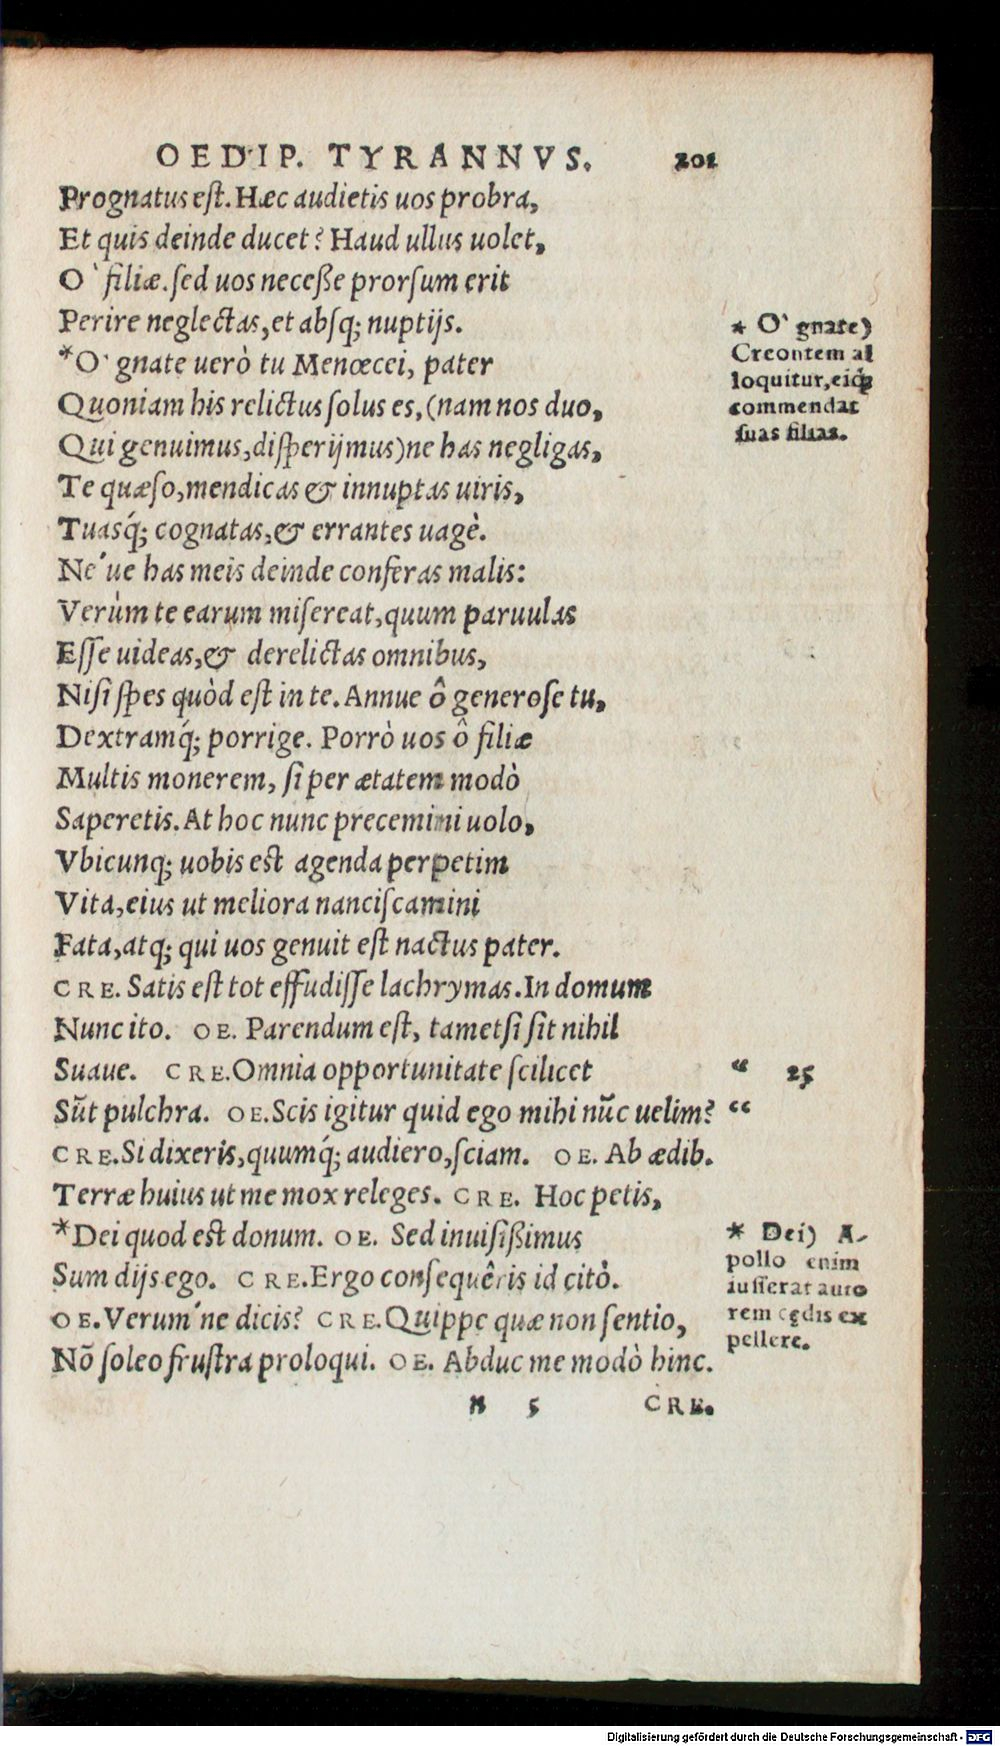 OEDIP. TYRANNVS. 201
Prognatus est. Hæc audietis uos probra,
Et quis deinde ducet? Haud ullus uolet,
O` filiæ. sed uos neceße prorsum erit
Perire neglectas, et absq; nuptijs.
*O` gnate uerò tu Menœcei, pater
Quoniam his relictus solus es, (nam nos duo,
Qui genuimus, disperijmus) ne has negligas,
Te quæso, mendicas & innuptas uiris,
Tuasq́; cognatas, & errantes uagè.
Ne´ue has meis deinde conferas malis:
Verùm te earum misereat, quum paruulas
Esse uideas, & derelictas omnibus,
Nisi spes quòd est in te. Annue ô generose tu,
Dextramq́; porrige. Porrò uos ô filiæ
Multis monerem, si per ætatem modò
Saperetis. At hoc nunc precemini uolo,
Vbicunq; uobis est agenda perpetim
Vita, eius ut meliora nanciscamini
Fata, atq; qui uos genuit est nactus pater.
CRE. Satis est tot effudisse lachrymas. In domum
Nunc ito. OE. Parendum est, tametsi sit nihil
Suaue. CRE. Omnia opportunitate scilicet “ 25
Sũt pulchra. OE. Scis igitur quid ego mihi nũc uelim? “
CRE. Si dixeris, quumq́; audiero, sciam. OE. Ab ædib.
Terræ huius ut me mox releges. CRE. Hoc petis,
*Dei quod est donum. OE. Sed inuisißimus
Sum dijs ego. CRE. Ergo consequêris id citò.
OE. Verum´ne dicis? CRE. Quippe quæ non sentio,
Nõ soleo frustra proloqui. OE. Abduc me modò hinc.
N 5 CRE.
* O` gnate)
Creontem al
loquitur, eiq́;
commendat
suas filias.
* Dei) A-
pollo enim
iusserat auto
rem cędis ex
pellere.
Digitalisierung gefördert durch die Deutsche Forschungsgemeinschaft - DFG